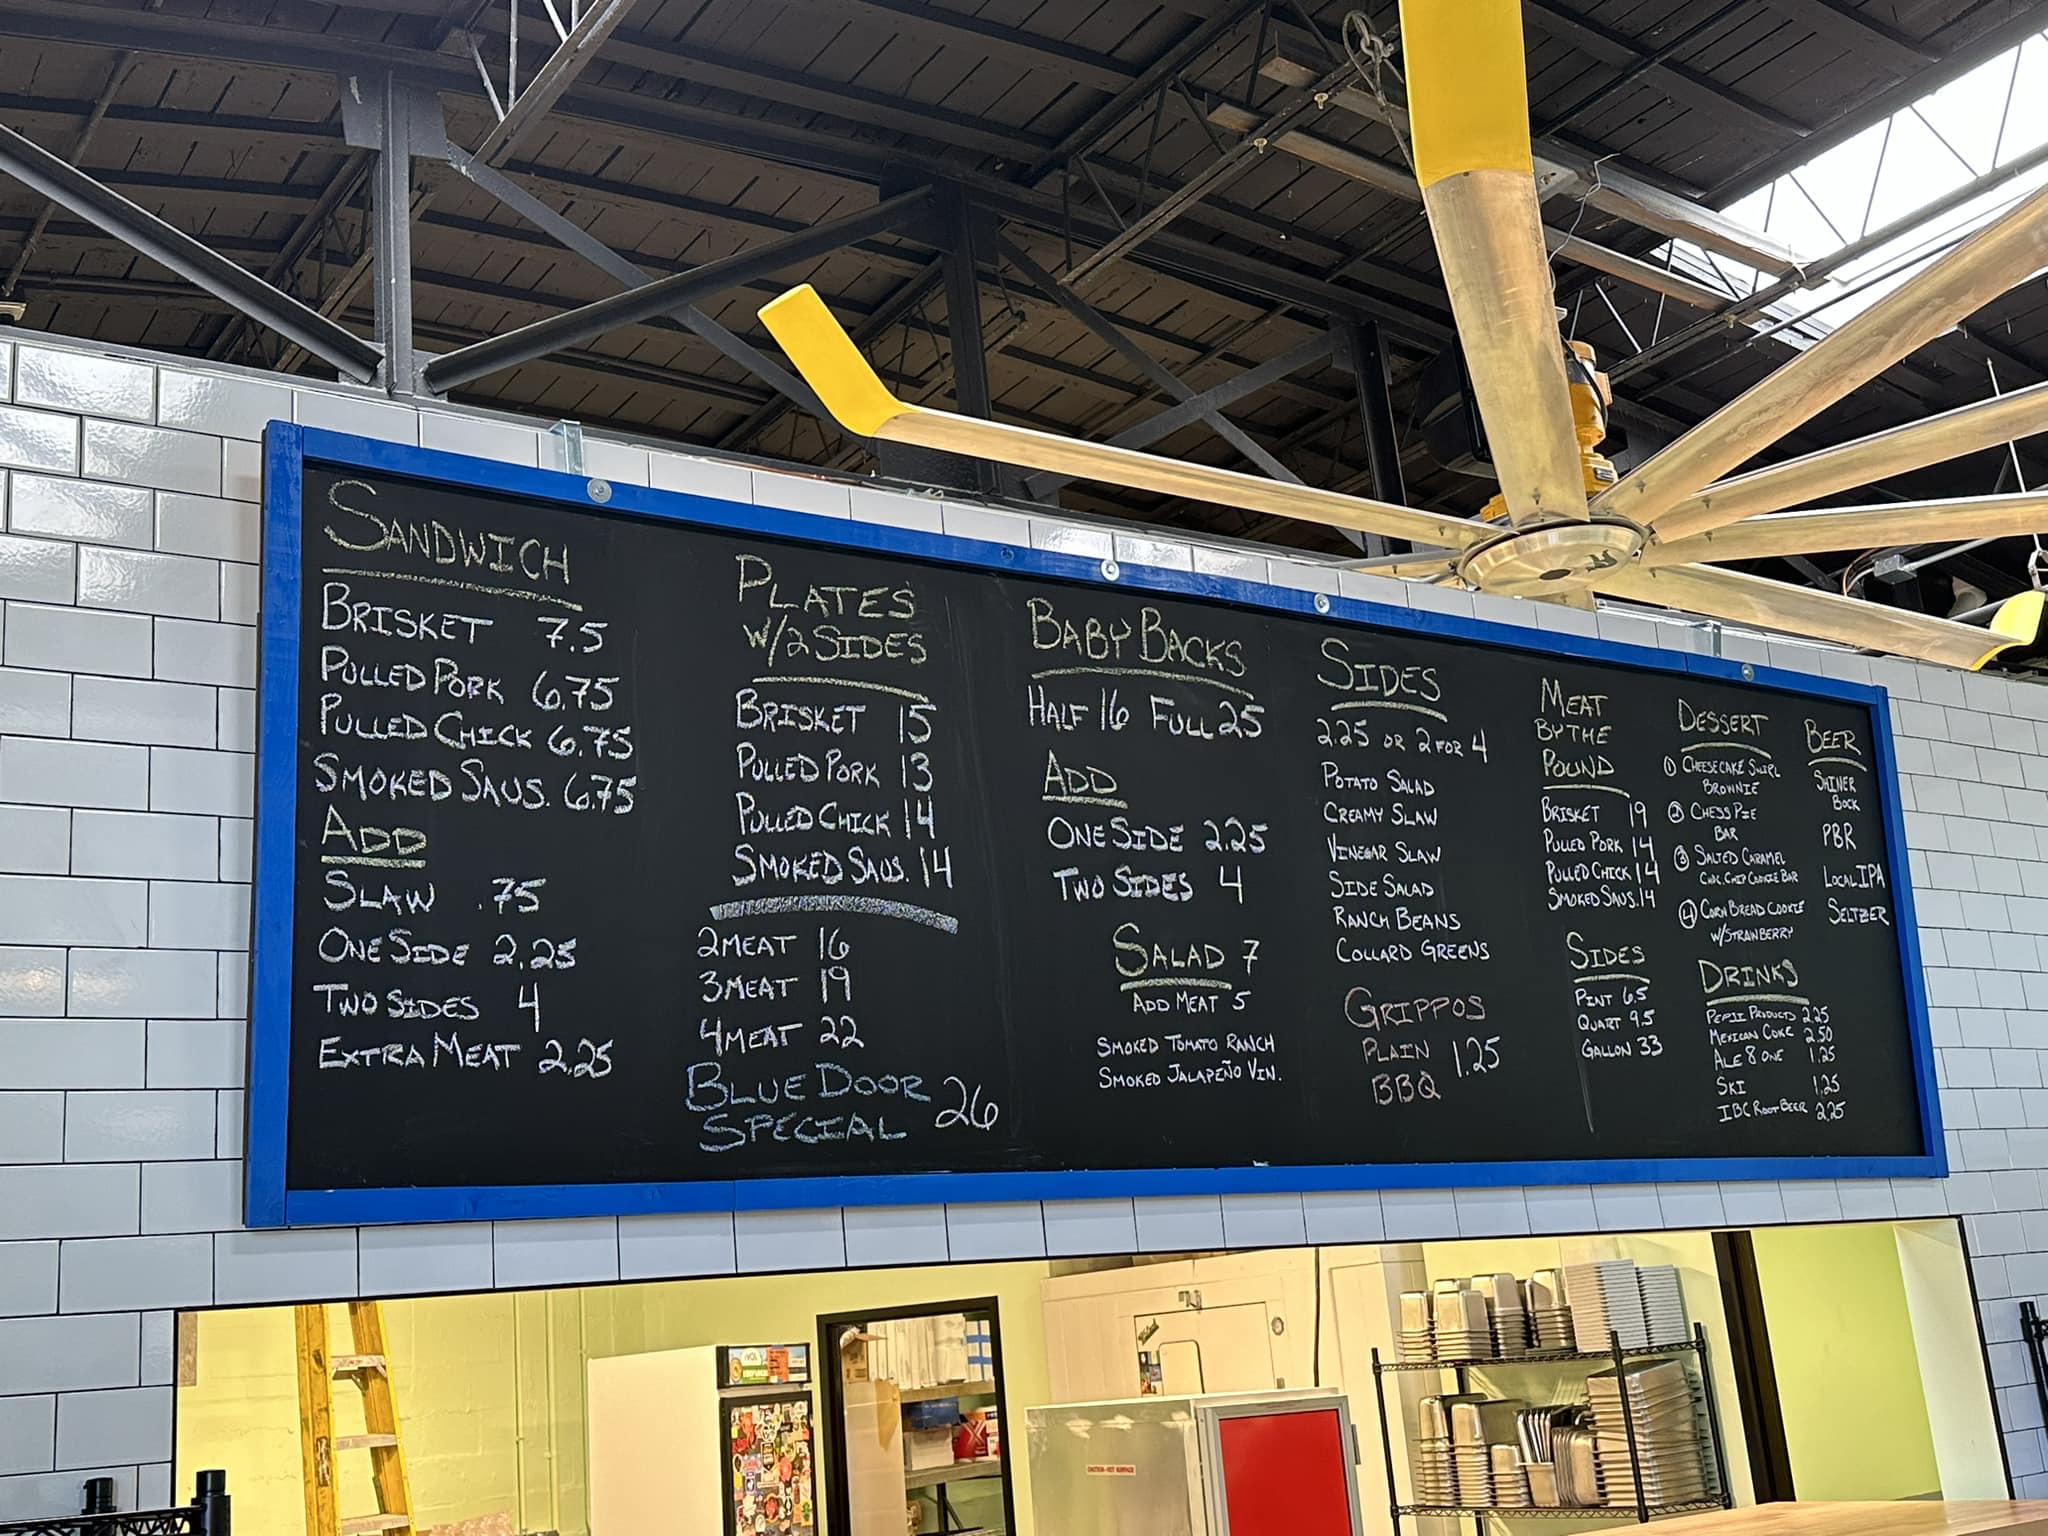 SANDWICH
BRISKET 7.5
PULLED PORK 6.75
PULLED CHICK 6.75
SMOKED SAUS. 6.75
ADD
SLAW .75
ONE SIDE 2.25
TWO SIDES 4
EXTRA MEAT 2.25
PLATES
W/2 SIDES
BRISKET 15
PULLED PORK 13
PULLED CHICK 14
SMOKED SAUS. 14
2 MEAT 16
3 MEAT 19
4 MEAT 22
BLUE DOOR
SPECIAL 26
BABY BACKS
HALF 16 FULL 25
ADD
ONE SIDE 2.25
TWO SIDES 4
SALAD 7
ADD MEAT 5
SMOKED TOMATO RANCH
SMOKED JALAPEÑO VIN.
SIDES
2.25 OR 2 FOR 4
POTATO SALAD
CREAMY SLAW
VINEGAR SLAW
SIDE SALAD
RANCH BEANS
COLLARD GREENS
GRIPPOS
PLAIN 1.25
BBQ
MEAT
BY THE
POUND
BRISKET 19
PULLED PORK 14
PULLED CHICK 14
SMOKED SAUS. 14
SIDES
PINT 6.5
QUART 9.5
GALLON 33
DESSERT
① CHEESECAKE SWIRL
BROWNIE
② CHESS PIE
BAR
③ SALTED CARAMEL
CHOC. CHIP COOKIE BAR
④ CORN BREAD COOKIE
W/STRAWBERRY
DRINKS
PEPSI PRODUCTS 2.25
MEXICAN COKE 2.50
ALE 8 ONE 1.25
SKI 1.25
IBC ROOT BEER 2.25
BEER
SHINER
BOCK
PBR
LOCAL IPA
SELTZER
CAUTION-HOT SURFACE